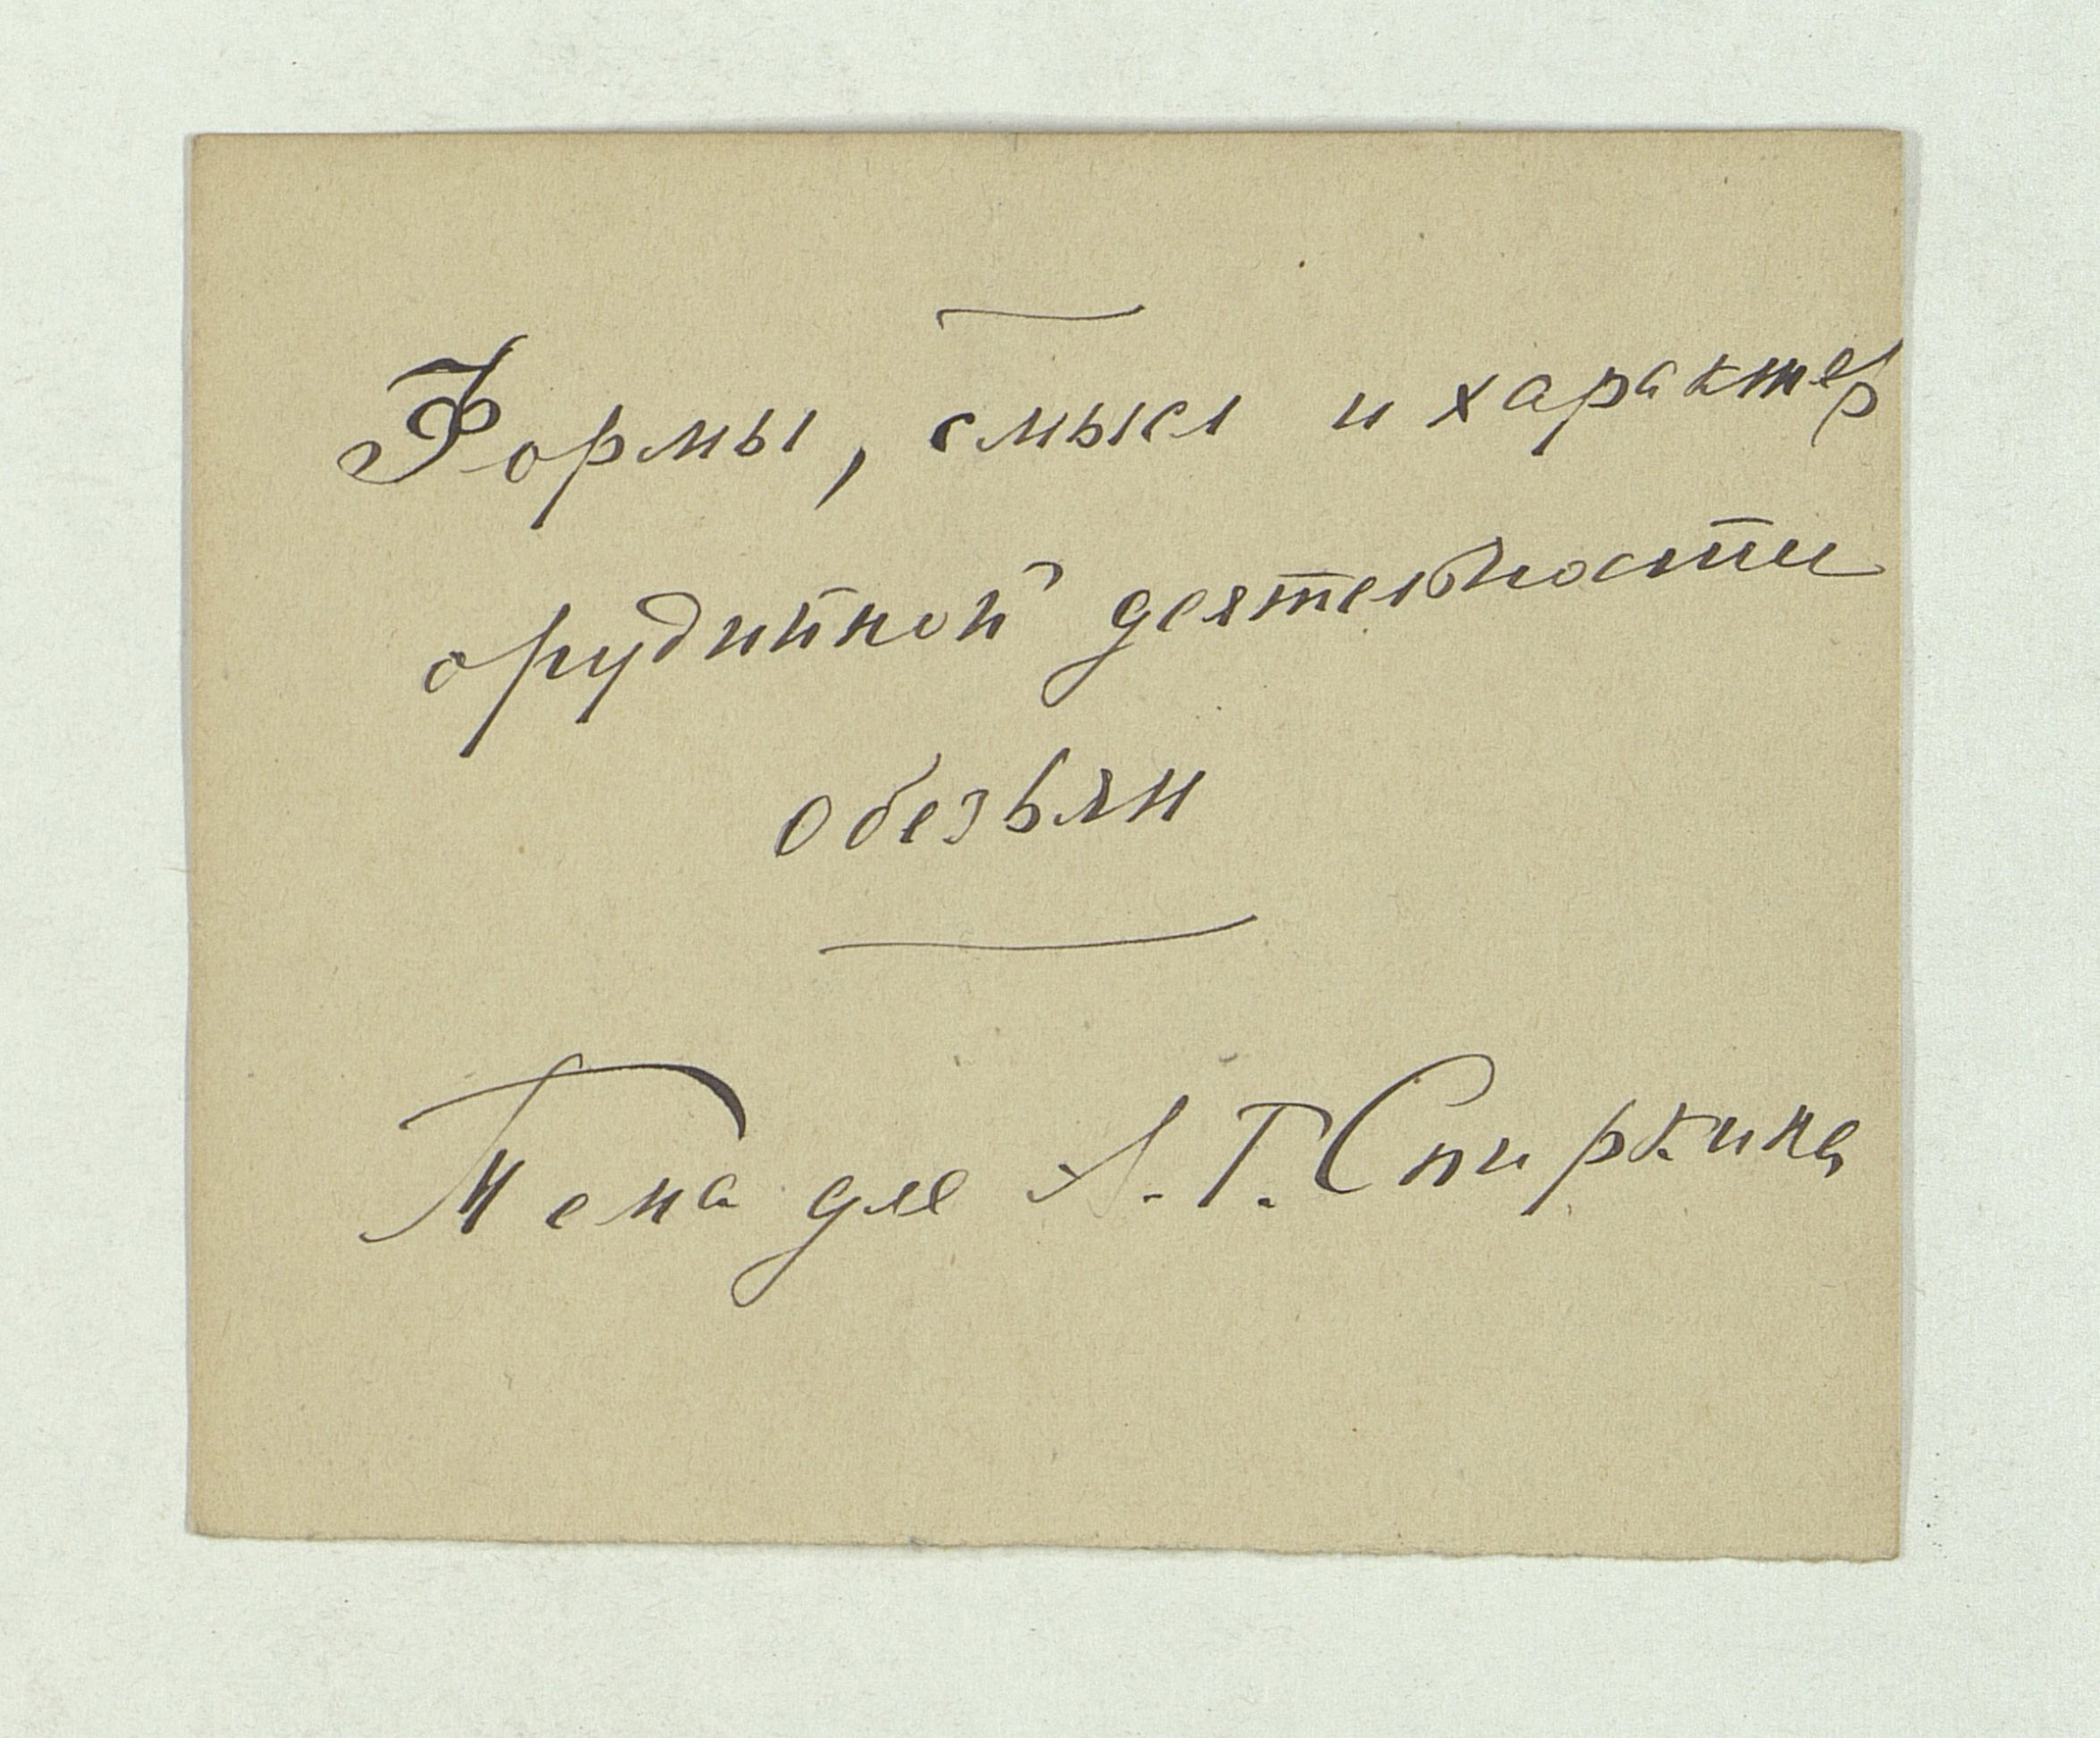 Формы, смысл и характер
орудийной деятельности
обезьян
Тема для А. Г. Спиркина